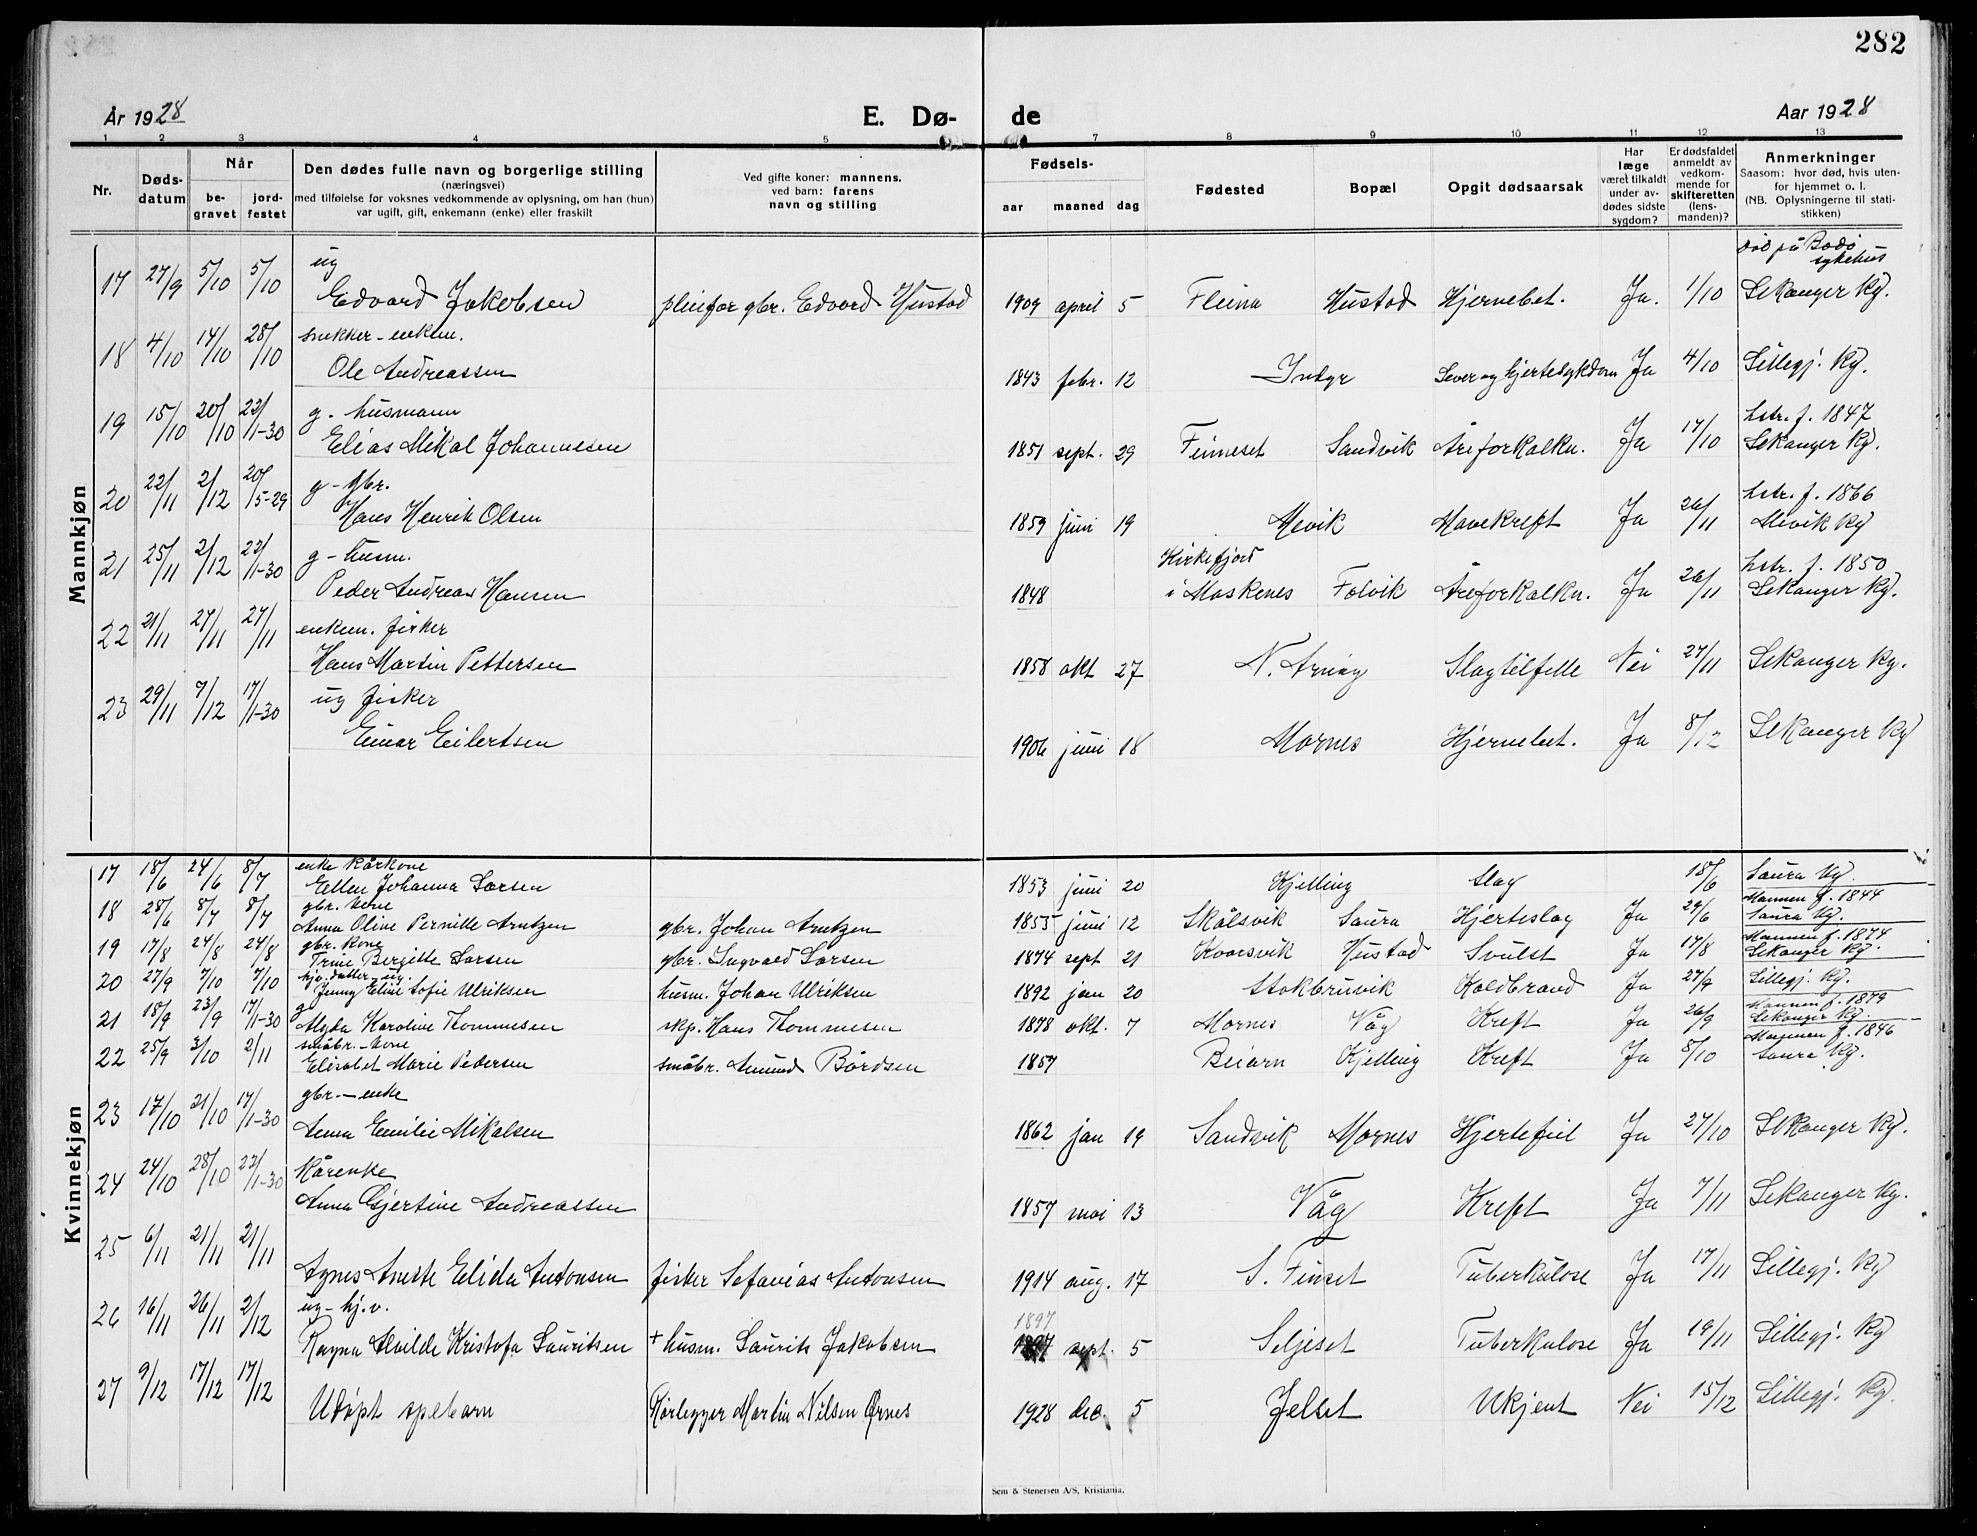 282
År 1928
E. Dø-
de
Aar 1928
1 2 3 4 5 7 8 9 10 11 12 13
Nr.
Døds-
datum
Når
be-
gravet
jord-
festet
Den dødes fulle navn og borgerlige stilling
(næringsvei)
med tilføielse for voksnes vedkommende av oplysning, om han (hun)
var ugift, gift, enkemann (enke) eller fraskilt
Ved gifte koner: mannens.
ved barn: farens
navn og stilling
Fødsels-
aar maaned dag
Fødested
Bopæl
Opgit dødsaarsak
Har
læge
været tilkaldt
under av-
dødes sidste
sygdom?
Er dødsfaldet
anmeldt av
vedkom-
mende for
skifteretten
(lens-
manden)?
Anmerkninger
Saasom: hvor død, hvis uten-
for hjemmet o. l.
(NB. Oplysningerne til stati-
stikken)
Mannkjøn
ug død på Bodø
sykehus
17 27/9 5/10 5/10 Edvard Jakobsen pleiefar gbr. Edvard Hustad 1909 april 5 Fleina Hustad Hjernebet. Ja. 1/10 Lekanger kg.
snekker - enkem.
18 4/10 14/10 28/10 Ole Andreassen 1843 febr. 12 Indyr Lever og hjertesykdom Ja 4/10 Lillegj. kg.
g. husmann hstr. f. 1847
19 15/10 20/10 22/1-30 Elias Mikal Johannessen 1851 sept. 29 Finneset Sandvik Åreforkalkn. Ja 17/10 Lekanger kg.
g - gbr. hstr. f. 1866
20 22/11 2/12 20/5-29 Hans Henrik Olsen 1859 juni 19 Mevik Mavekreft Ja 26/11 Mevik kg
g - husm. Kirkefjord hstr. f. 1850
21 25/11 2/12 22/1-30 Peder Andreas Hansen 1848 i Moskenes Folvik Åreforkalkn. Ja 26/11 Lekanger kg.
enkem. fisker
22 21/11 27/11 27/11 Hans Martin Pettersen 1858 okt 27 N. Arnøy Slagtilfelle Nei 27/11 Lekanger kg.
ug fisker
23 29/11 7/12 17/1-30 Einar Eilertsen 1906 juni 18 Mornes Hjernebet. Ja 8/12 Lekanger kg
Kvinnekjøn
enke kårkone
17 18/6 24/6 8/7 Ellen Johanna Larsen 1853 juni 20 Kjelling Slag 18/6 Saura kg.
gbr. kone Mannen f. 1844
18 28/6 8/7 8/7 Anna Oline Pernille Arntzen gbr. Johan Arntzen 1855 juni 12 Skålsvik Saura Hjerteslag Ja 29/6 Saura kg.
gbr. kone Mannen f. 1874
19 17/8 24/8 24/8 Trine Bergitte Larsen gbr. Ingvald Larsen 1874 sept 21 Kvarsvik Hustad Svulst Ja 17/8 Lekanger kg.
hjv. datter - ug.
20 27/9 7/10 7/10 Jenny Elise Sofie Ulriksen husm. Johan Ulriksen 1892 jan 20 Stokbruvik Koldbrand Ja 27/9 Lillegj. kg.
g Mannen f. 1879
21 18/9 23/9 17/1-30 Alyda Karoline Thommesen skp. Hans Thommesen 1878 okt. 7 Mornes Våg Kreft Ja 26/9 Lekanger kg.
småbr. - kone Mannen f. 1846
22 25/9 3/10 2/11 Elisabet Marie Pedersen småbr. Amund Bårdsen 1857 Beiarn Kjelling Kreft Ja 8/10 Saura kg.
gbr. - enke
23 17/10 21/10 17/1-30 Anna Emilie Mikalsen 1862 jan 19 Sandvik Mornes Hjertefeil Ja 27/10 Lekanger kg.
Kårenke
24 24/10 28/10 22/1-30 Anna Gjertine Andreassen 1857 mai 13 Våg Kreft Ja 7/11 Lekanger kg.
25 6/11 21/11 21/11 Agnes Anette Elida Antonsen fisker Sefanias Antonsen 1914 aug. 17 S. Finset Tuberkulose Ja 17/11 Lillegj. kg
ug - hj. v. 1897
26 16/11 26/11 2/12 Ragna Alvilde Kristofa Lauritsen + husm. Laurits Jakobsen sept. 5 Seljeset Tuberkulose Ja 19/11 Lillegj. kg
27 9/12 17/12 17/12 Udøpt spebarn Rørlegger Martin Nilsen Ørnes 1928 des. 5 Jelset Ukjent Nei 15/12 Lillegj. kg.
Sem & Stenersen A/S, Kristiania.